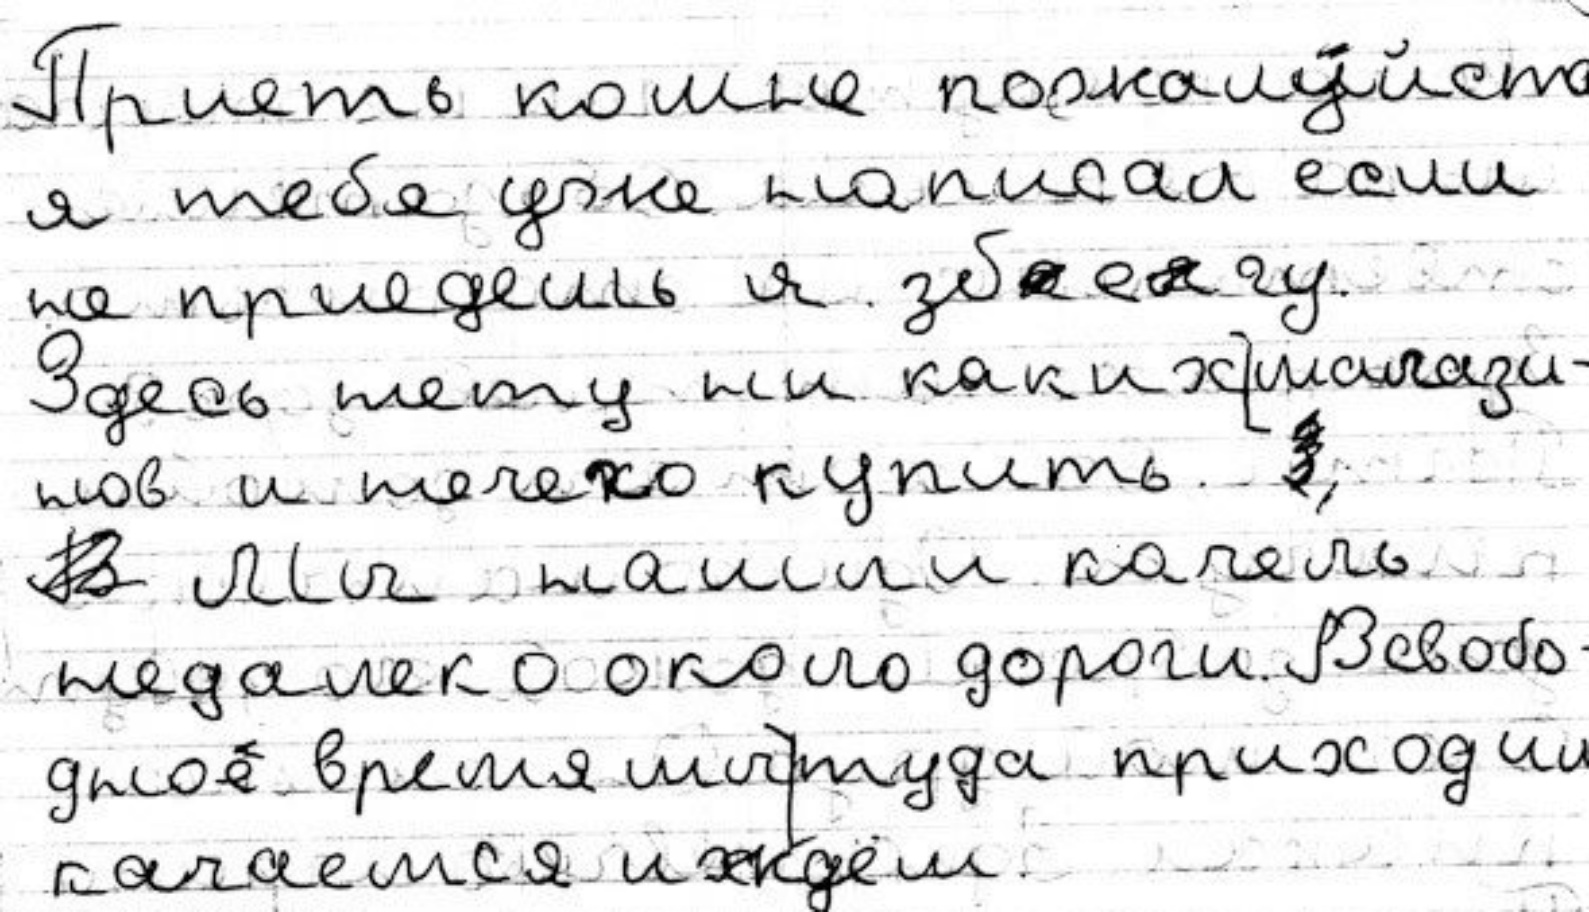 Приеть комне пожалуйста
я тебе уже написал если
не приедешь я збегу.
Здесь нету ни каких магази-
нов и нечего купить.
Мы нашли качель
недалеко около дороги. В свобо-
дное время мы туда приходим
качаемся и ждём.